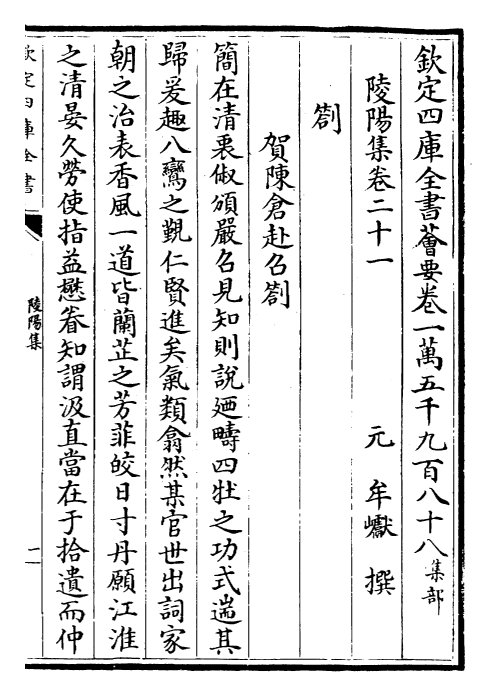 欽定四庫全書薈要卷一萬五千九百八十八集部
陵陽集卷二十一
元 牟巘 撰
劄
賀陳倉赴召劄
簡在清衷俶頒嚴召見知則說廼疇四牡之功式遄其
歸爰趣八鸞之覲仁賢進矣氣類翕然某官世出詞家
朝之治表香風一道皆蘭芷之芳菲皎日寸丹願江淮
之清晏久勞使指益懋眷知謂汲直當在于拾遺而仲
欽定四庫全書
陵陽集
一